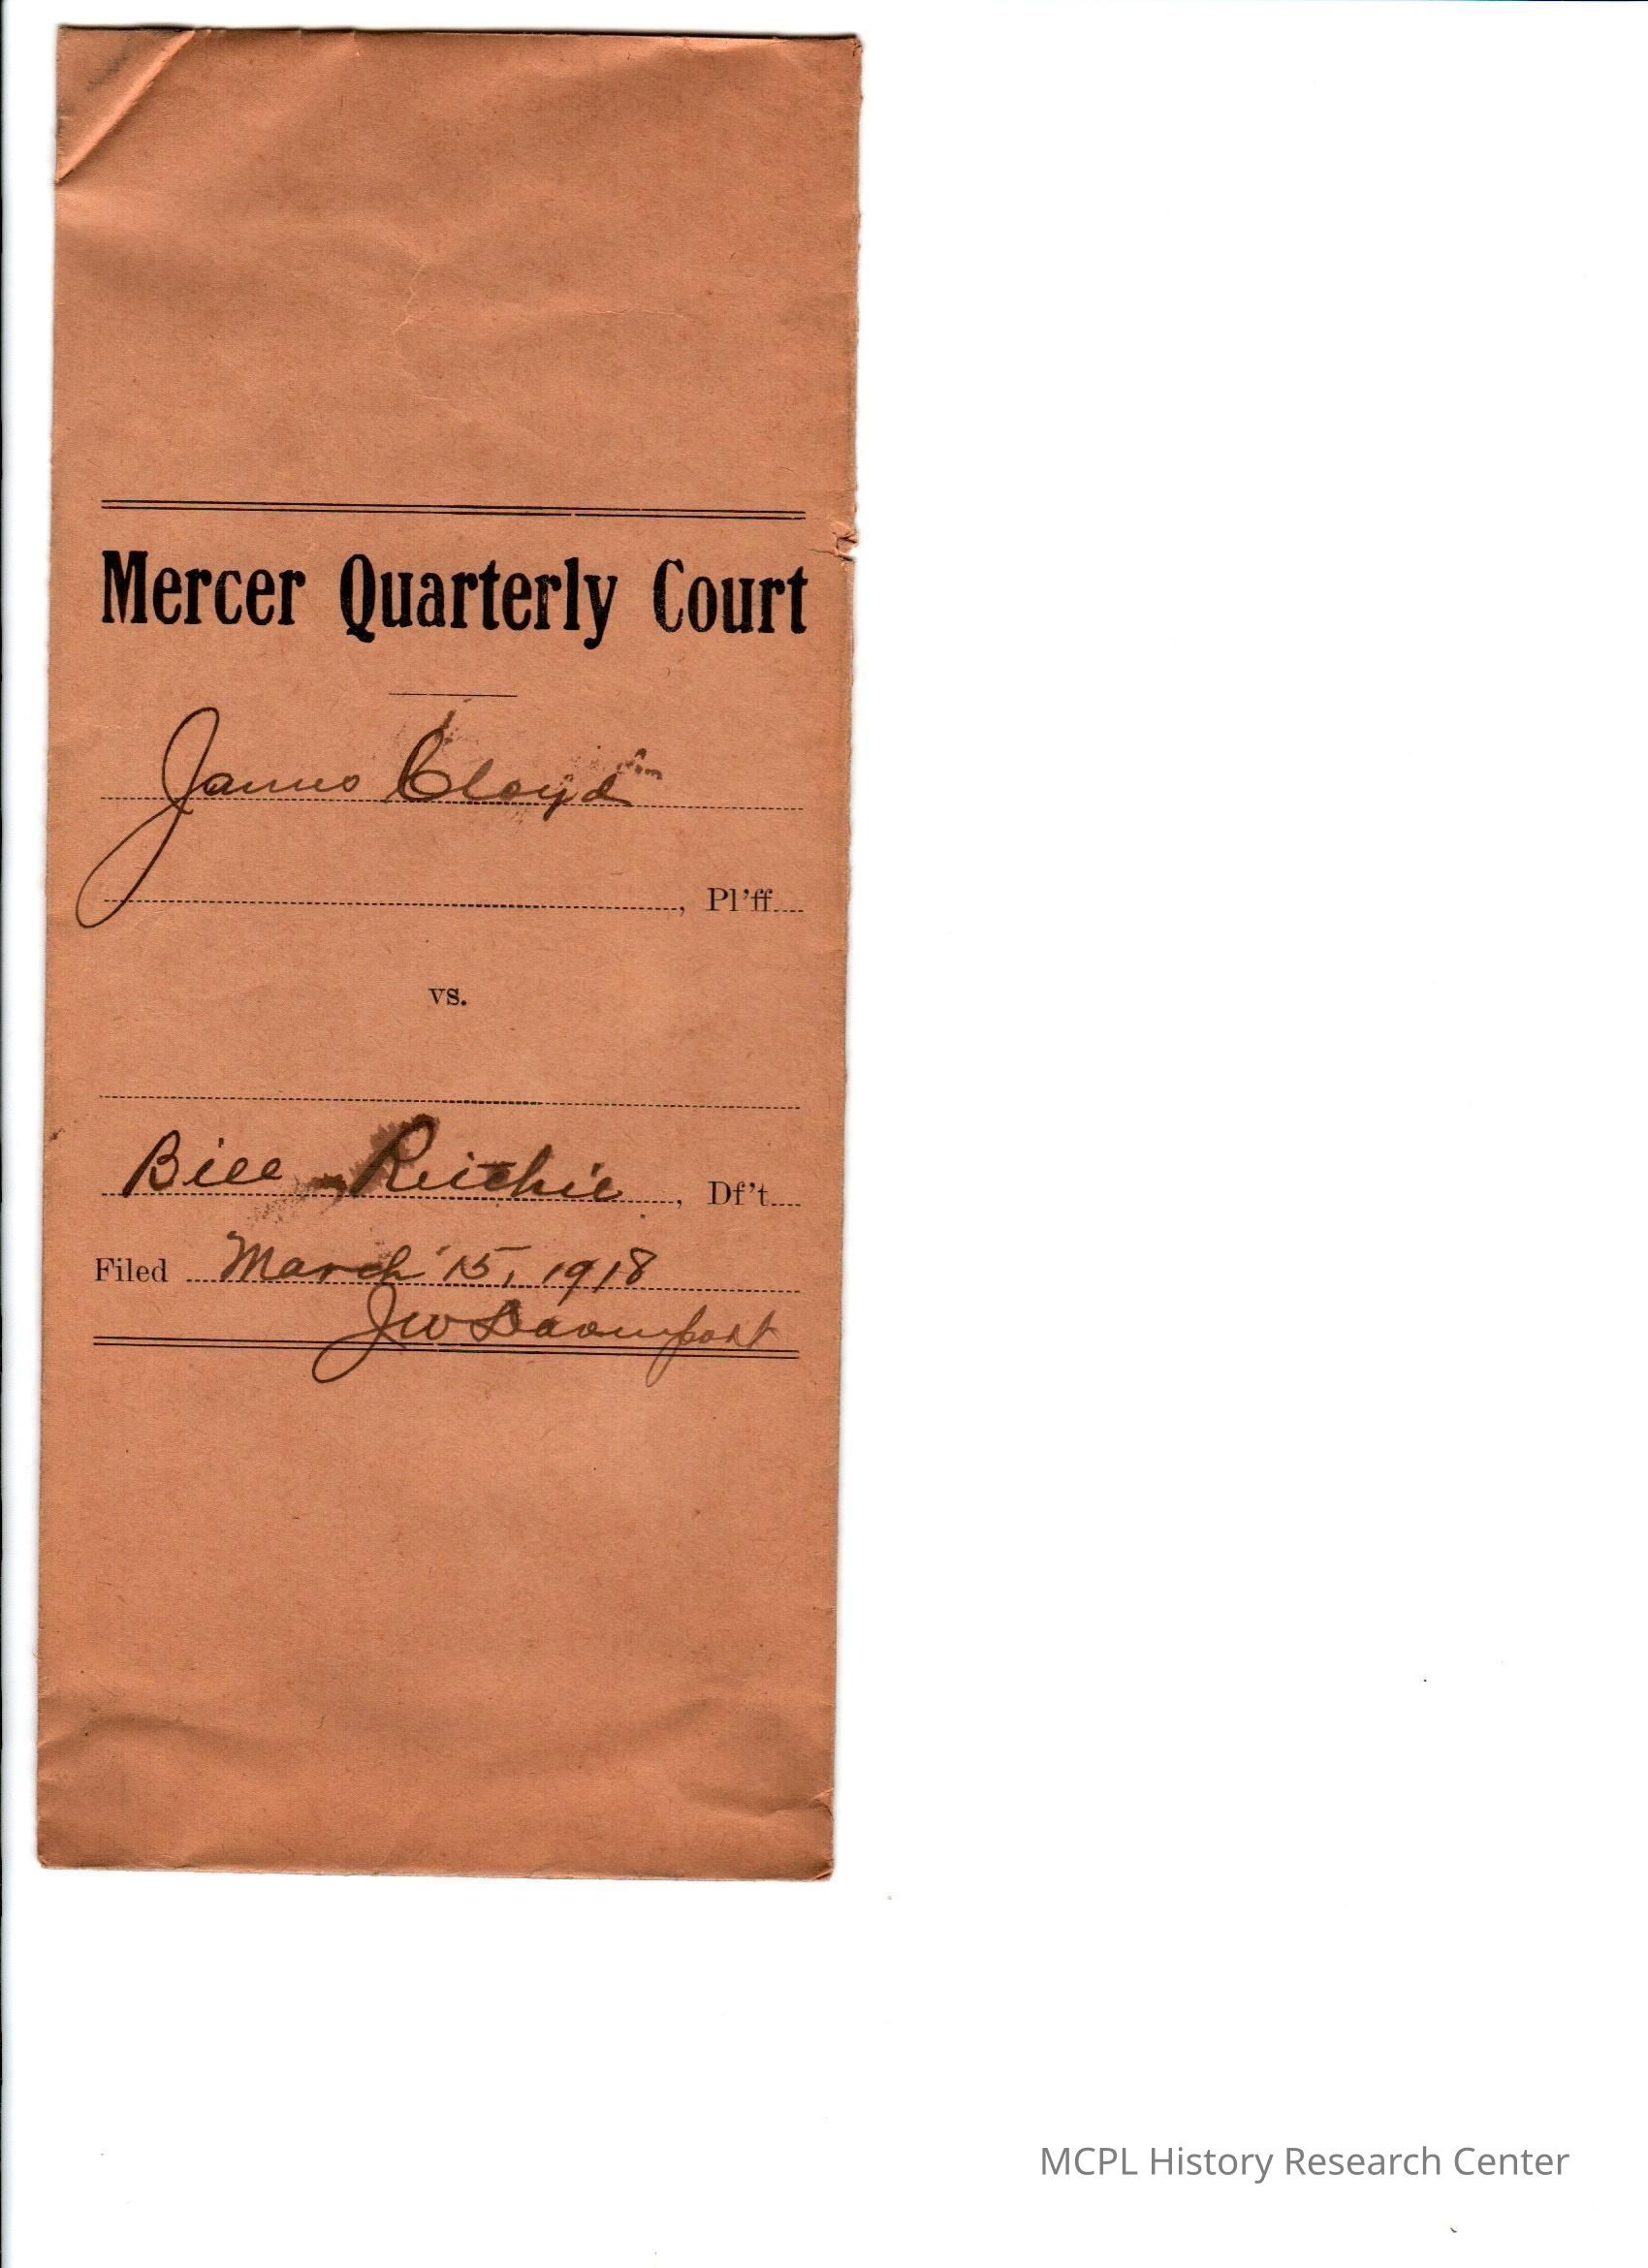 Mercer Quarterly Court
James Cloyd
, Pl'ff
vs.
Bill Ritchie, Df't
Filed March 15, 1918
JW Davenport
MCPL History Research Center